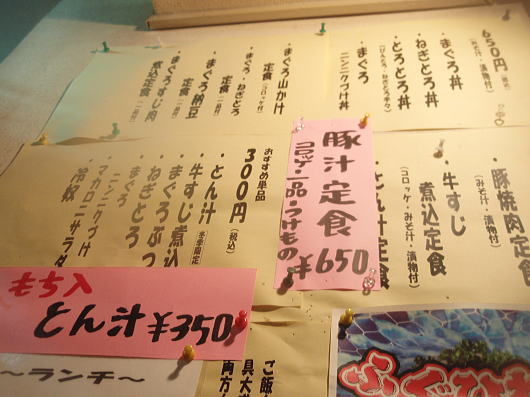 ６５０円（税込）
（みそ汁・漬物付）
・まぐろ丼
・ねぎとろ丼
・とろとろ丼
（びんとろ・ねぎとろ半々）
・まぐろ
ニンニクづけ丼
・まぐろ山かけ
定食（コロッケ付）
・まぐろ・ねぎとろ
定食（一品付）
・まぐろ納豆
定食（一品付）
・まぐろすじ肉
煮込定食（一品付）
・豚焼肉定食
（みそ汁・漬物付）
・牛すじ
煮込定食
（コロッケ・みそ汁・漬物付）
とん汁定食
豚汁定食
コロッケ・一品・つけもの
¥650
おすすめ単品
３００円（税込）
・とん汁（冬季限定）
・牛すじ煮込
・まぐろぶつ
・ねぎとろ
・ニンニクづけ
・マカロニサラダ
・冷奴
もち入
とん汁¥350
～ランチ～
ご飯
具大
両方